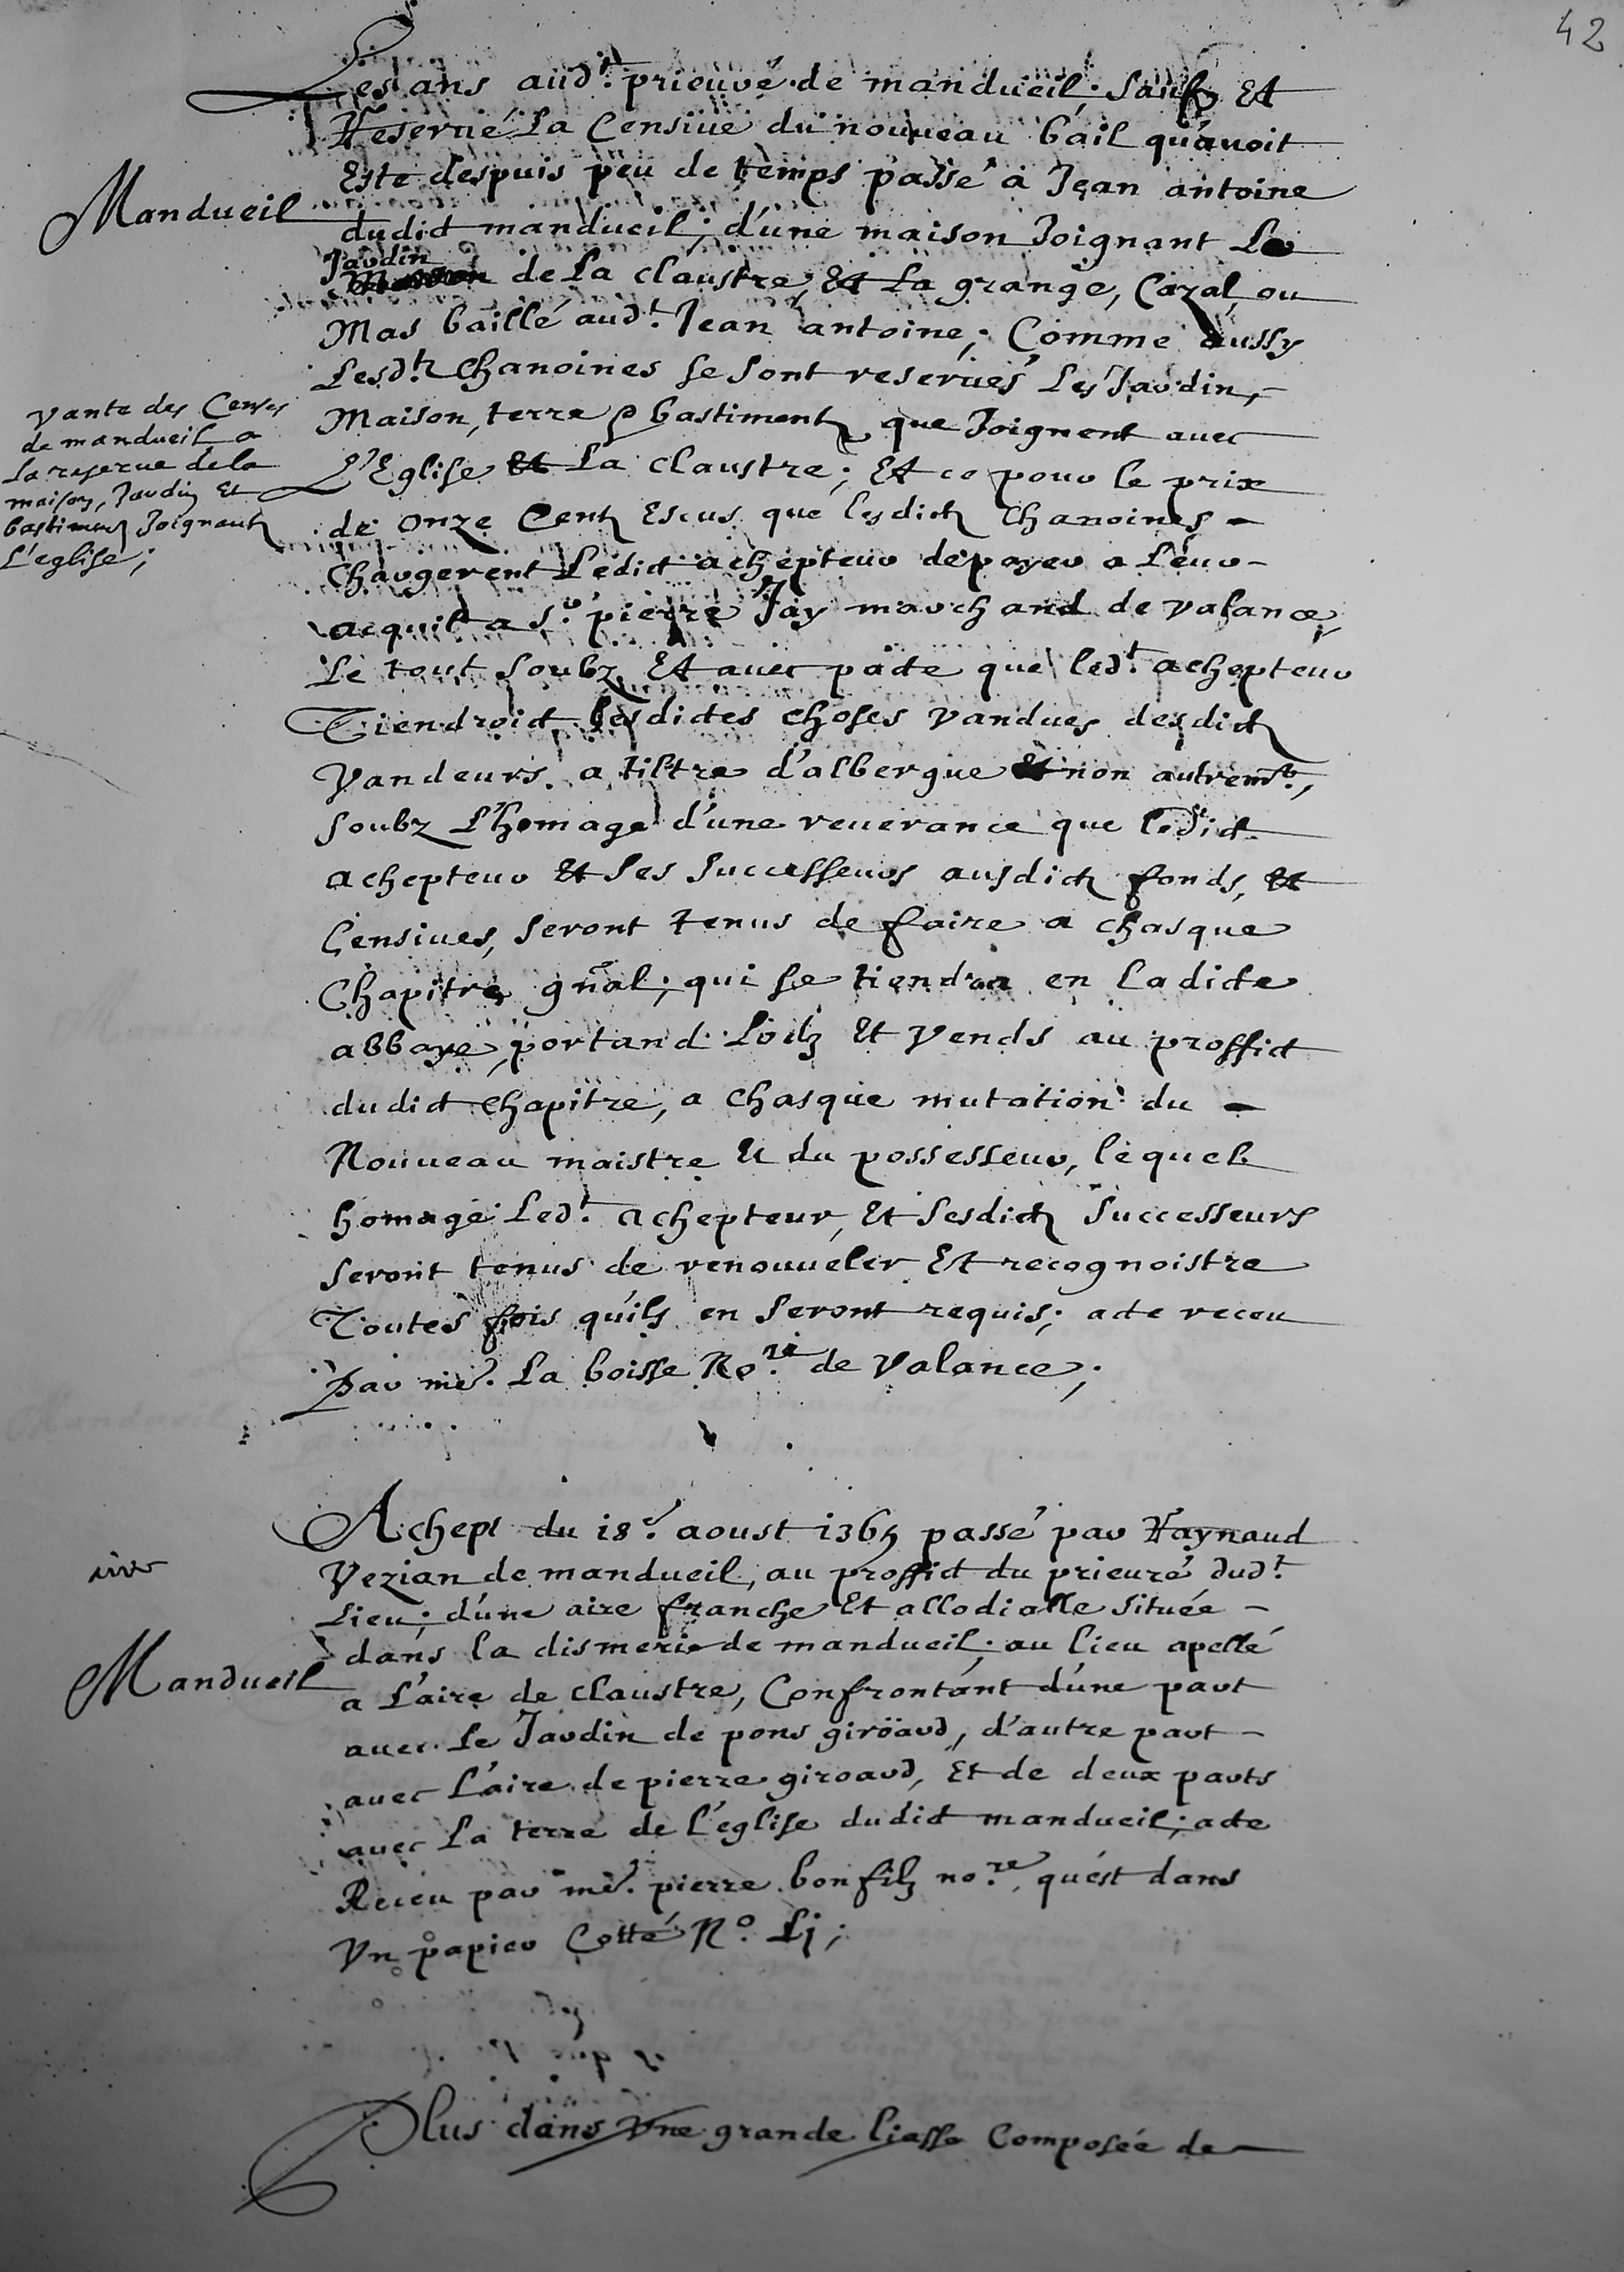 42
Les ans aud.t prieuré de mandueil; Sauf Et
Reserué La Censiue du nouueau bail qu'auoit
Este despuis peu de temps passé a Jean antoine
Mandueil
dudict mandueil; d'une maison Joignant Le
Jardin
de La claustre, Et La grange, Cazal, ou
Mas baillé aud.t Jean antoine; Comme aussy
Lesd.tz Chanoines se sont reserués Les Jardin,
Maison, terre & bastimentz que Joignent auec
L'Eglise Et La claustre; Et ce pour le prix
de onze Centz Escus que lesdictz Chanoines
Chargerent Ledict achepteur de payer a Leur
acquit a S.r pierre Jay marchand de valance,
Le tout soubz Et auec pacte que led.t achepteur
Tiendroict lesdictes choses vandues desdictz
Vandeurs a tiltre d'albergue Et non autrem.t,
soubz L'homage d'une reuerance que ledict
achepteur Et ses successeurs ausdictz fonds, Et
Censiues, seront tenus de faire a chasque
Chapitre gñal; qui se tiendra en Ladicte
abbaye, portand Lodz Et vends au proffict
dudict chapitre, a chasque mutation du
Nouueau maistre Et du possesseur, lequel
homage Led.t achepteur, Et sesdictz successeurs
seront tenus de renouueler Et recognoistre
Toutes fois qu'ils en seront requis; acte receu
Par me. La boisse No.re de Valance;
vante des Censes
de mandueil a
La reserue de la
maison, Jardin Et
bastimens Joignantz
L'eglise;
Achept du 18.e aoust 1365 passé par Raynaud
Vezian de mandueil, au proffict du prieuré dud.t
Lieu; d'une aire franche Et allodialle située
dans la dismerie de mandueil; au lieu apellé
Mandueil
a L'aire de claustre, Confrontant d'une part
auec Le Jardin de pons giröard, d'autre part
auec L'aire de pierre giroard, Et de deux parts
auec La terre de L'eglise dudict mandueil; acte
Receu par me. pierre bonfilz no.re, qu'est dans
Vn papier Cotté N.o Lj;
Plus dans Vne grande liasse Composée de